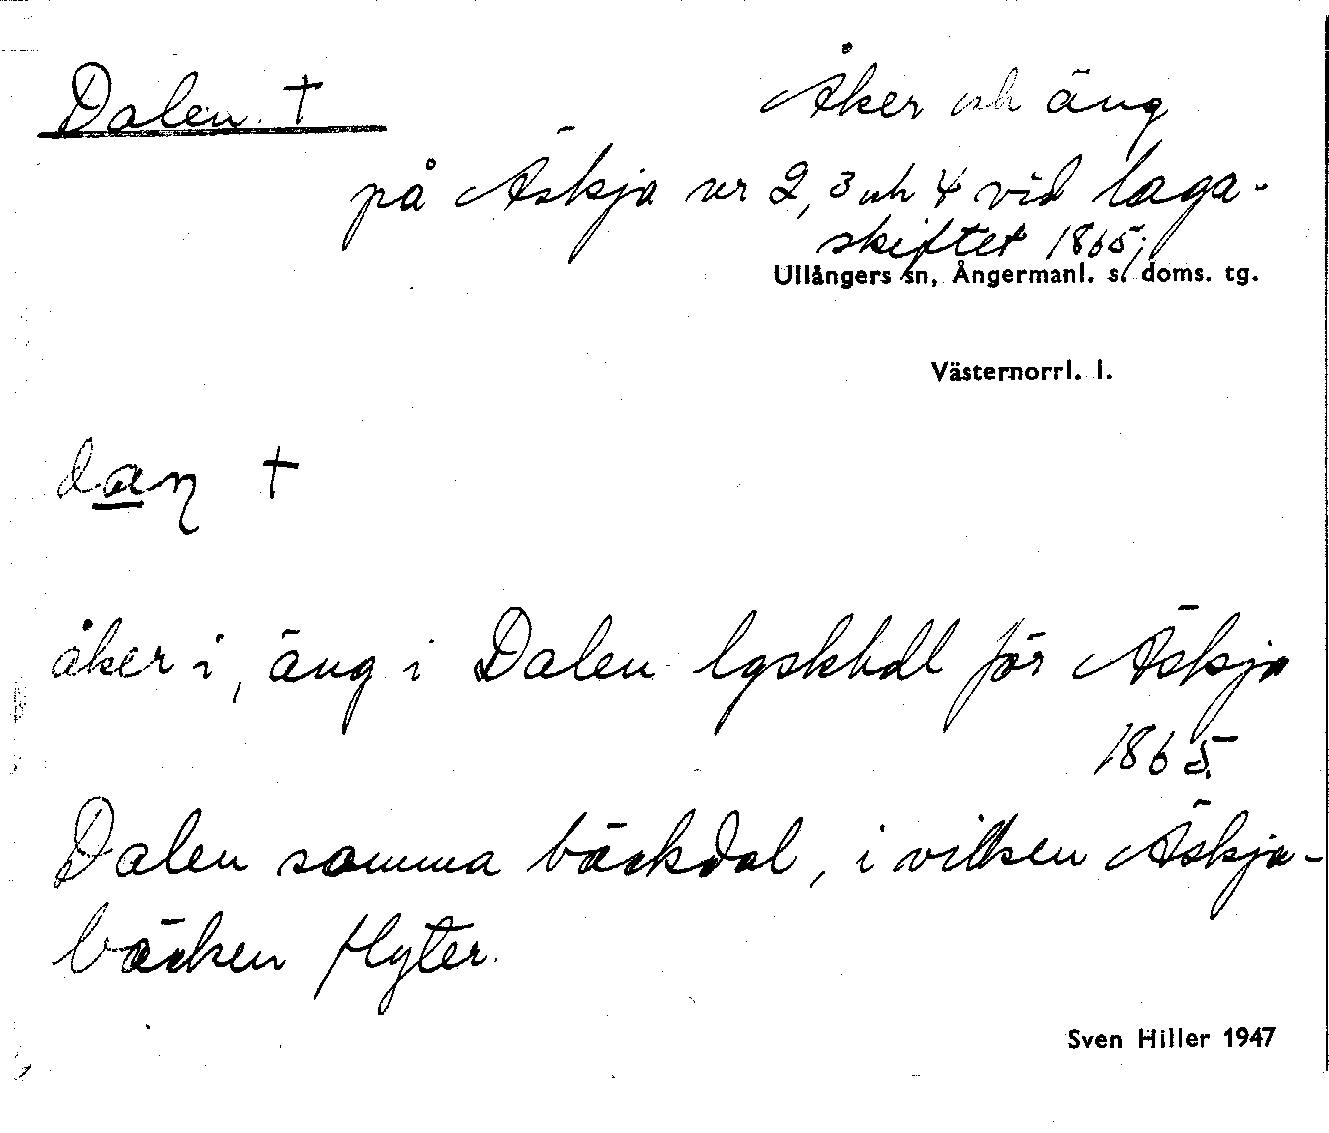 Dalen †
Åker och äng
på Äskja nr 2, 3 och 4 vid laga-
skiftet 1865;
Ullångers sn, Ångermanl. s. doms. tg.
Västernorrl. l.
daη †
åker i, äng i Dalen lgskhdl för Äskja
1865.
Dalen samma bäckdal, i vilken Äskja-
bäcken flyter.
Sven Hiller 1947